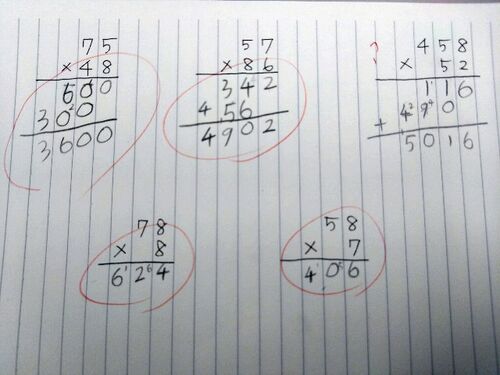 75
×48
600
300
3600
57
×86
342
456
4902
?
458
×52
116
+ 490
5016
78
×8
624
58
×7
406